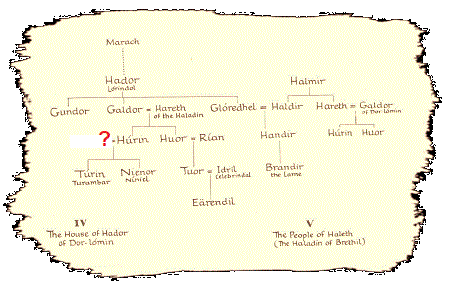 Marach
Hador
Lórindol
Halmir
Gundor Galdor = Hareth Glóredhel = Haldir Hareth = Galdor
of the Haladin of Dor-lómin
?-Húrin Huor = Rían Handir Húrin Huor
Túrin Nienor Tuor = Idril Brandir
Turambar Níniel Celebrindal the Lame
Eärendil
IV V
The House of Hador The People of Haleth
of Dor-lómin (The Haladin of Brethil)